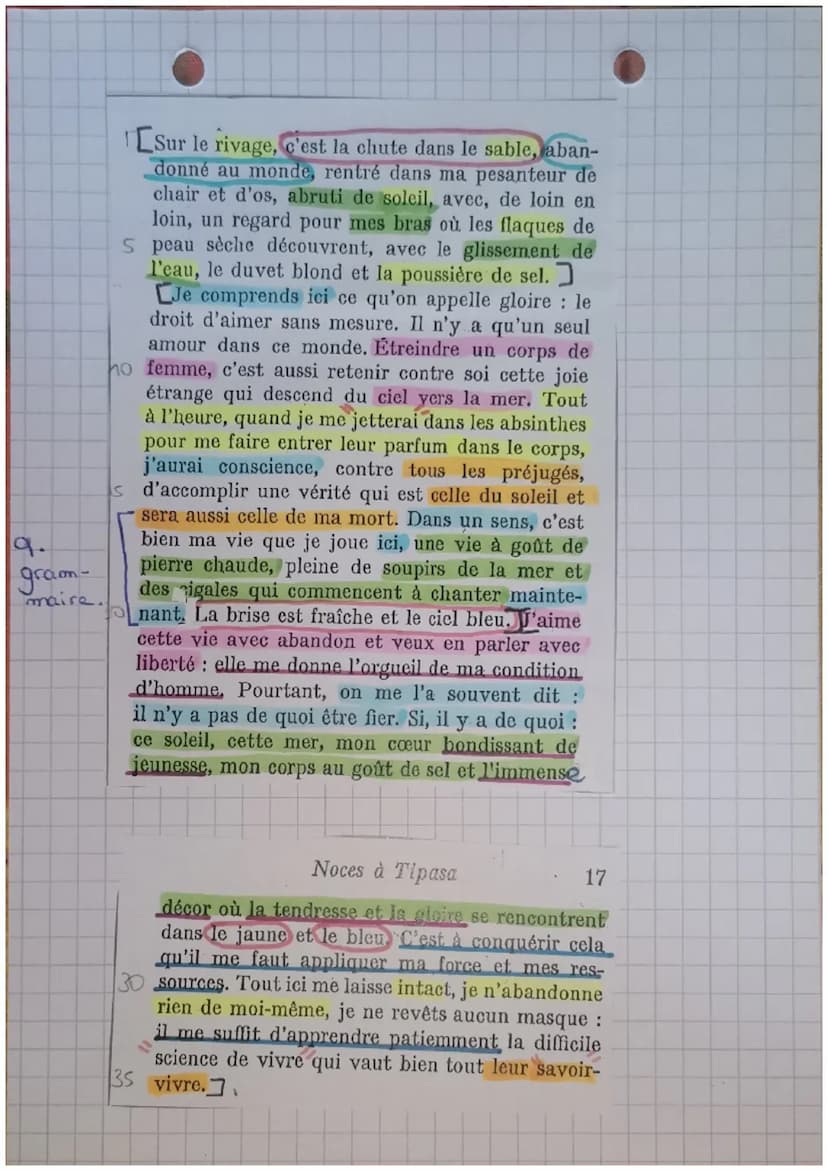 1 [Sur le rivage, c'est la chute dans le sable, aban-
donné au monde, rentré dans ma pesanteur de
chair et d'os, abruti de soleil, avec, de loin en
loin, un regard pour mes bras où les flaques de
5 peau sèche découvrent, avec le glissement de
l'eau, le duvet blond et la poussière de sel.]
[Je comprends ici ce qu'on appelle gloire : le
droit d'aimer sans mesure. Il n'y a qu'un seul
amour dans ce monde. Étreindre un corps de
10 femme, c'est aussi retenir contre soi cette joie
étrange qui descend du ciel vers la mer. Tout
à l'heure, quand je me jetterai dans les absinthes
pour me faire entrer leur parfum dans le corps,
j'aurai conscience, contre tous les préjugés,
5 d'accomplir une vérité qui est celle du soleil et
sera aussi celle de ma mort. Dans un sens, c'est
bien ma vie que je joue ici, une vie à goût de
pierre chaude, pleine de soupirs de la mer et
des cigales qui commencent à chanter mainte-
nant. La brise est fraîche et le ciel bleu.] [J'aime
q.
gram-
maire.
cette vie avec abandon et veux en parler avec
liberté : elle me donne l'orgueil de ma condition
d'homme. Pourtant, on me l'a souvent dit :
il n'y a pas de quoi être fier. Si, il y a de quoi :
ce soleil, cette mer, mon cœur bondissant de
jeunesse, mon corps au goût de sel et l'immense
Noces à Tipasa 17
décor où la tendresse et la gloire se rencontrent
dans le jaune et le bleu. C'est à conquérir cela
qu'il me faut appliquer ma force et mes res-
30 sources. Tout ici me laisse intact, je n'abandonne
rien de moi-même, je ne revêts aucun masque :
il me suffit d'apprendre patiemment la difficile
science de vivre qui vaut bien tout leur savoir-
35 vivre.]